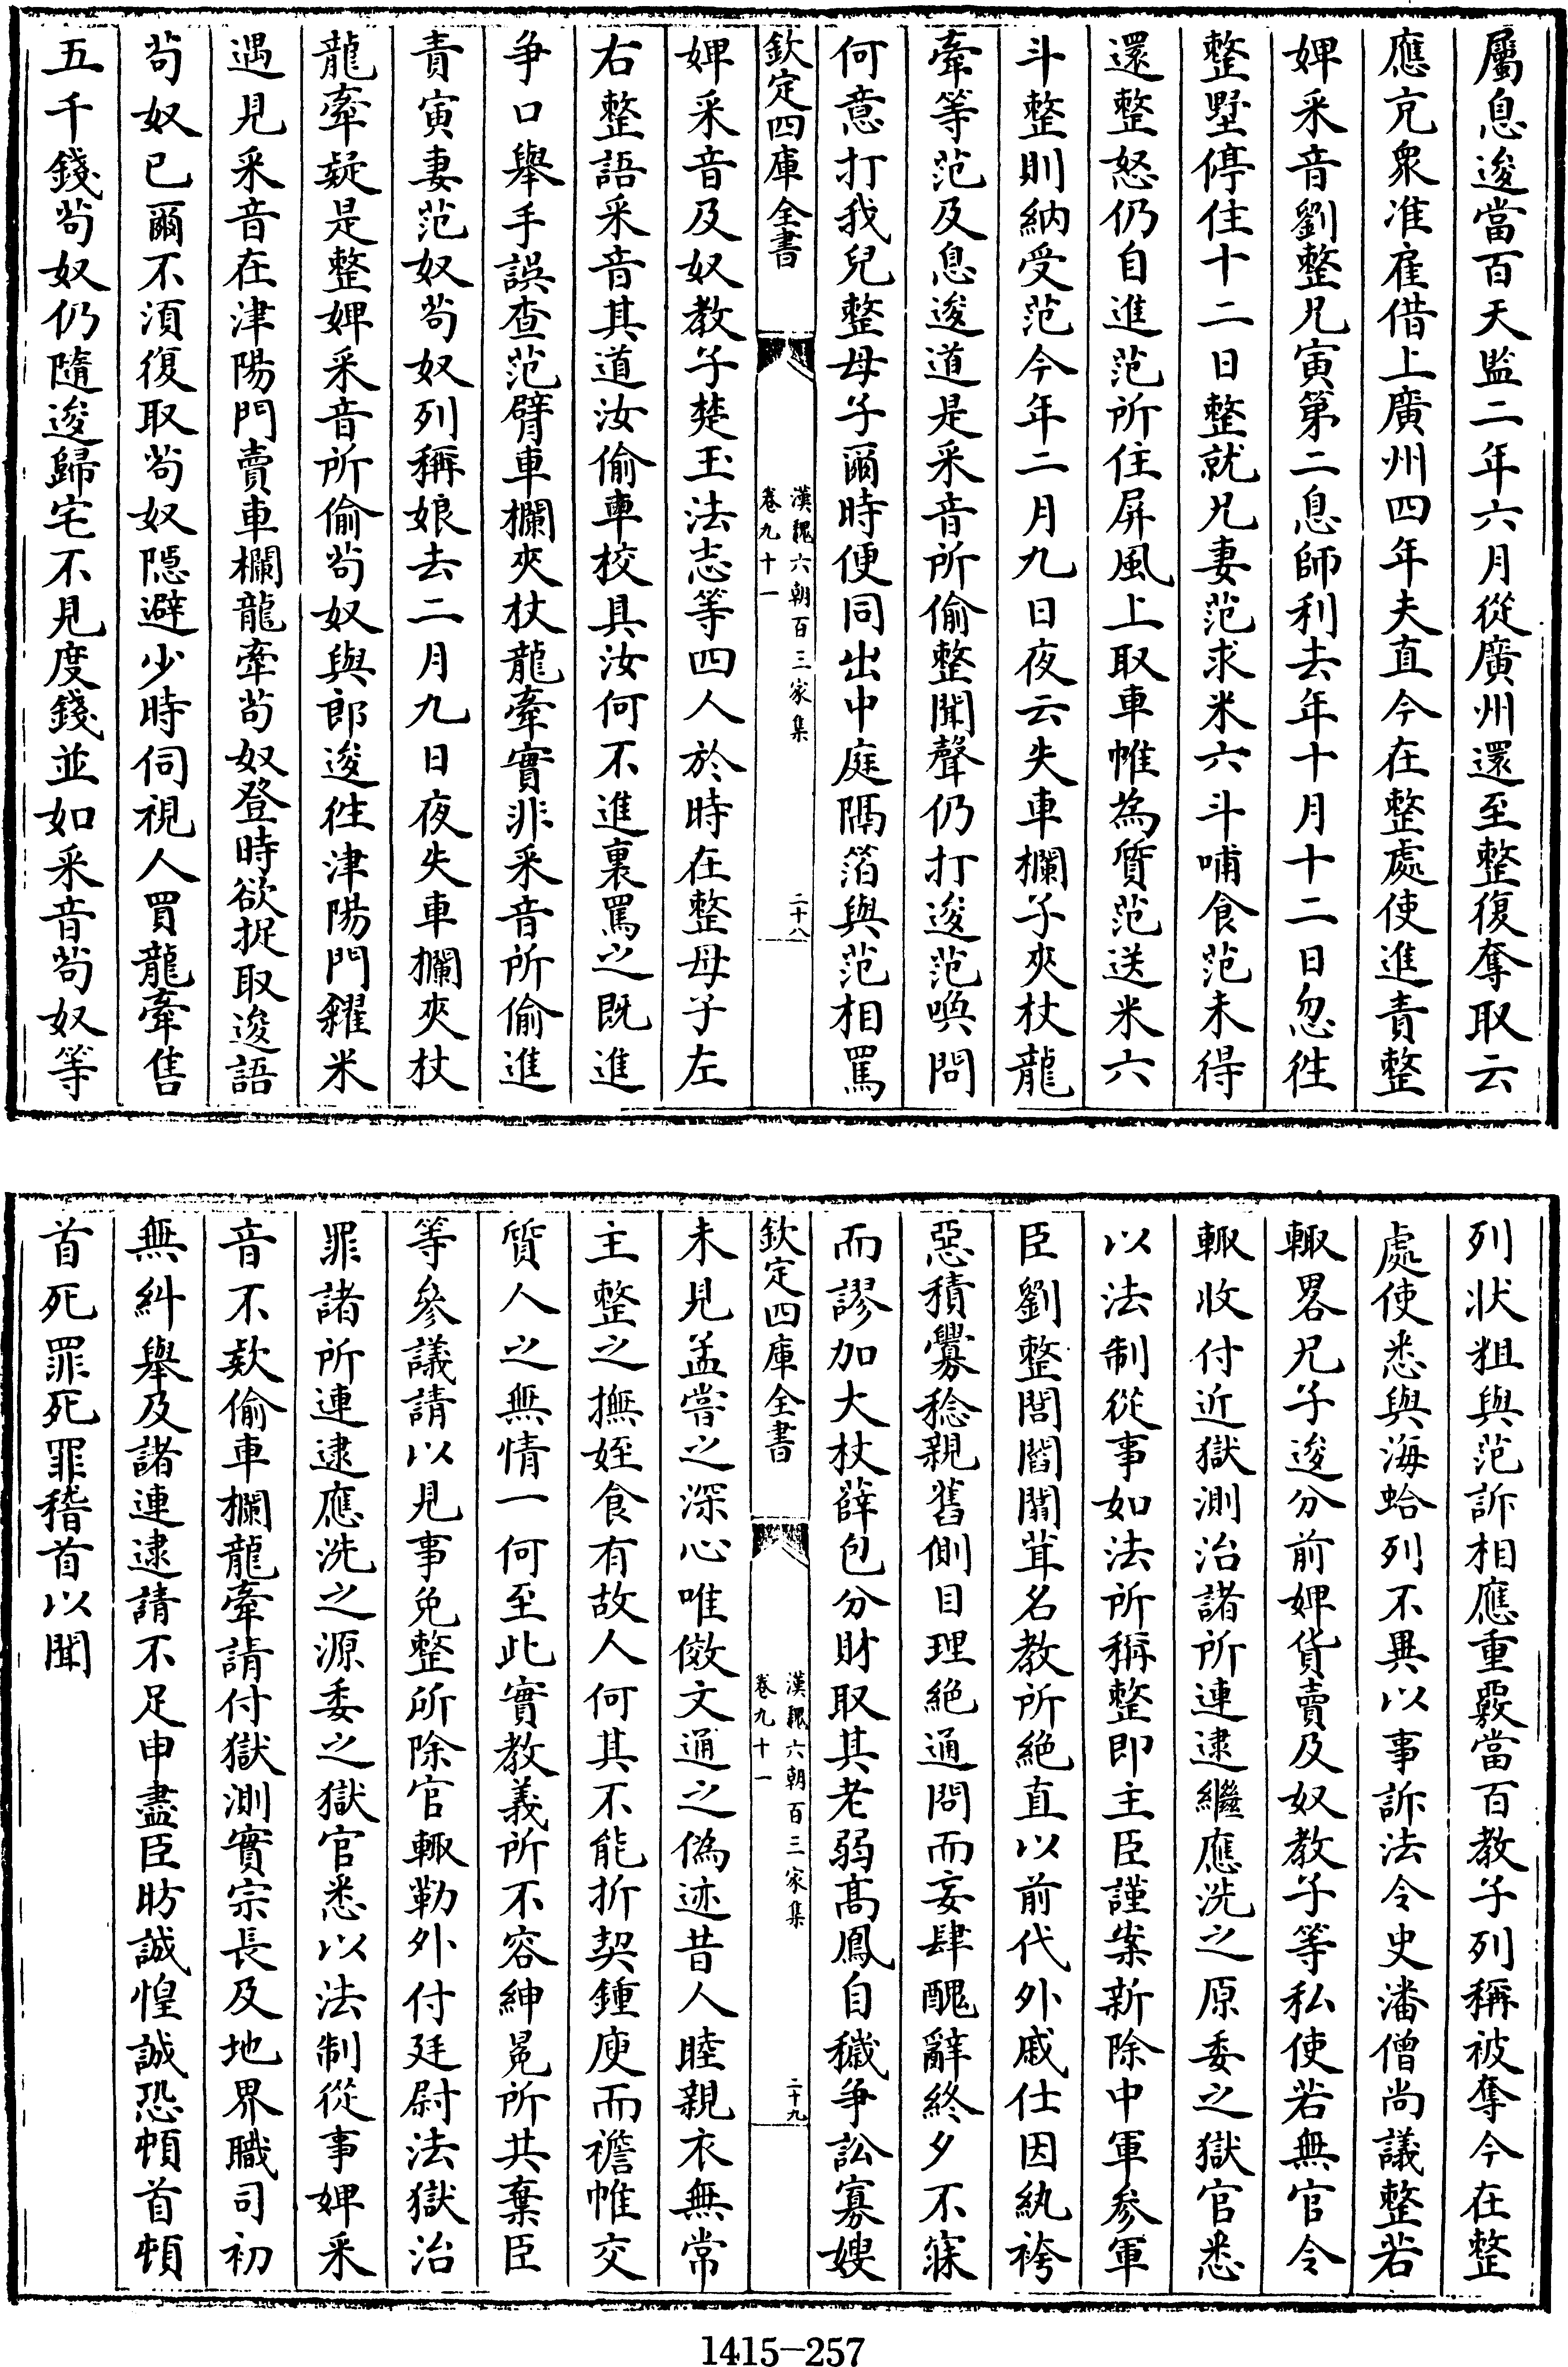 屬息逡當百天監二年六月從廣州還至整復奪取云
應充衆准雇借上廣州四年夫直今在整處使進責整
婢采音劉整兄寅第二息師利去年十月十二日忽徃
整墅停住十二日整就兄妻范求米六斗哺食范未得
還整怒仍自進范所住屏風上取車帷為質范送米六
斗整則納受范今年二月九日夜云失車欄子夾杖龍
牽等范及息逡道是采音所偷整聞聲仍打逡范喚問
何意打我兒整母子爾時便同出中庭隔箔與范相罵
欽定四庫全書
漢魏六朝百三家集
卷九十一
二十八
婢采音及奴教子楚玉法志等四人於時在整母子左
右整語采音其道汝偷車校具汝何不進裏罵之既進
争口舉手誤查范臂車欄夾杖龍牽實非采音所偷進
責寅妻范奴苟奴列稱娘去二月九日夜失車欄夾杖
龍牽疑是整婢采音所偷苟奴與郎逡徃津陽門糴米
遇見采音在津陽門賣車欄龍牽苟奴登時欲捉取逡語
苟奴已爾不湏復取苟奴隱避少時伺視人買龍牽售
五千錢苟奴仍隨逡歸宅不見度錢並如采音苟奴等
列狀粗與范訴相應重覈當百教子列稱被奪今在整
處使悉與海蛤列不異以事訴法令史潘僧尚議整若
輙畧兄子逡分前婢貨賣及奴教子等私使若無官令
輙收付近獄測治諸所連逮繼應洗之原委之獄官悉
以法制從事如法所稱整即主臣謹案新除中軍參軍
臣劉整閭閻闒茸名教所絶直以前代外戚仕因紈袴
惡積釁稔親舊側目理絶通問而妄肆醜辭終夕不寐
而謬加大杖薛包分財取其老弱高鳳自穢争訟寡嫂
欽定四庫全書
漢魏六朝百三家集
卷九十一
二十九
未見孟嘗之深心唯倣文通之偽迹昔人睦親衣無常
主整之撫姪食有故人何其不能折契鍾庾而襜帷交
質人之無情一何至此實教義所不容紳冕所共棄臣
等參議請以見事免整所除官輙勒外付廷尉法獄治
罪諸所連逮應洗之源委之獄官悉以法制從事婢采
音不欵偷車欄龍牽請付獄測實宗長及地界職司初
無糾舉及諸連逮請不足申盡臣昉誠惶誠恐頓首頓
首死罪死罪稽首以聞
1415-257